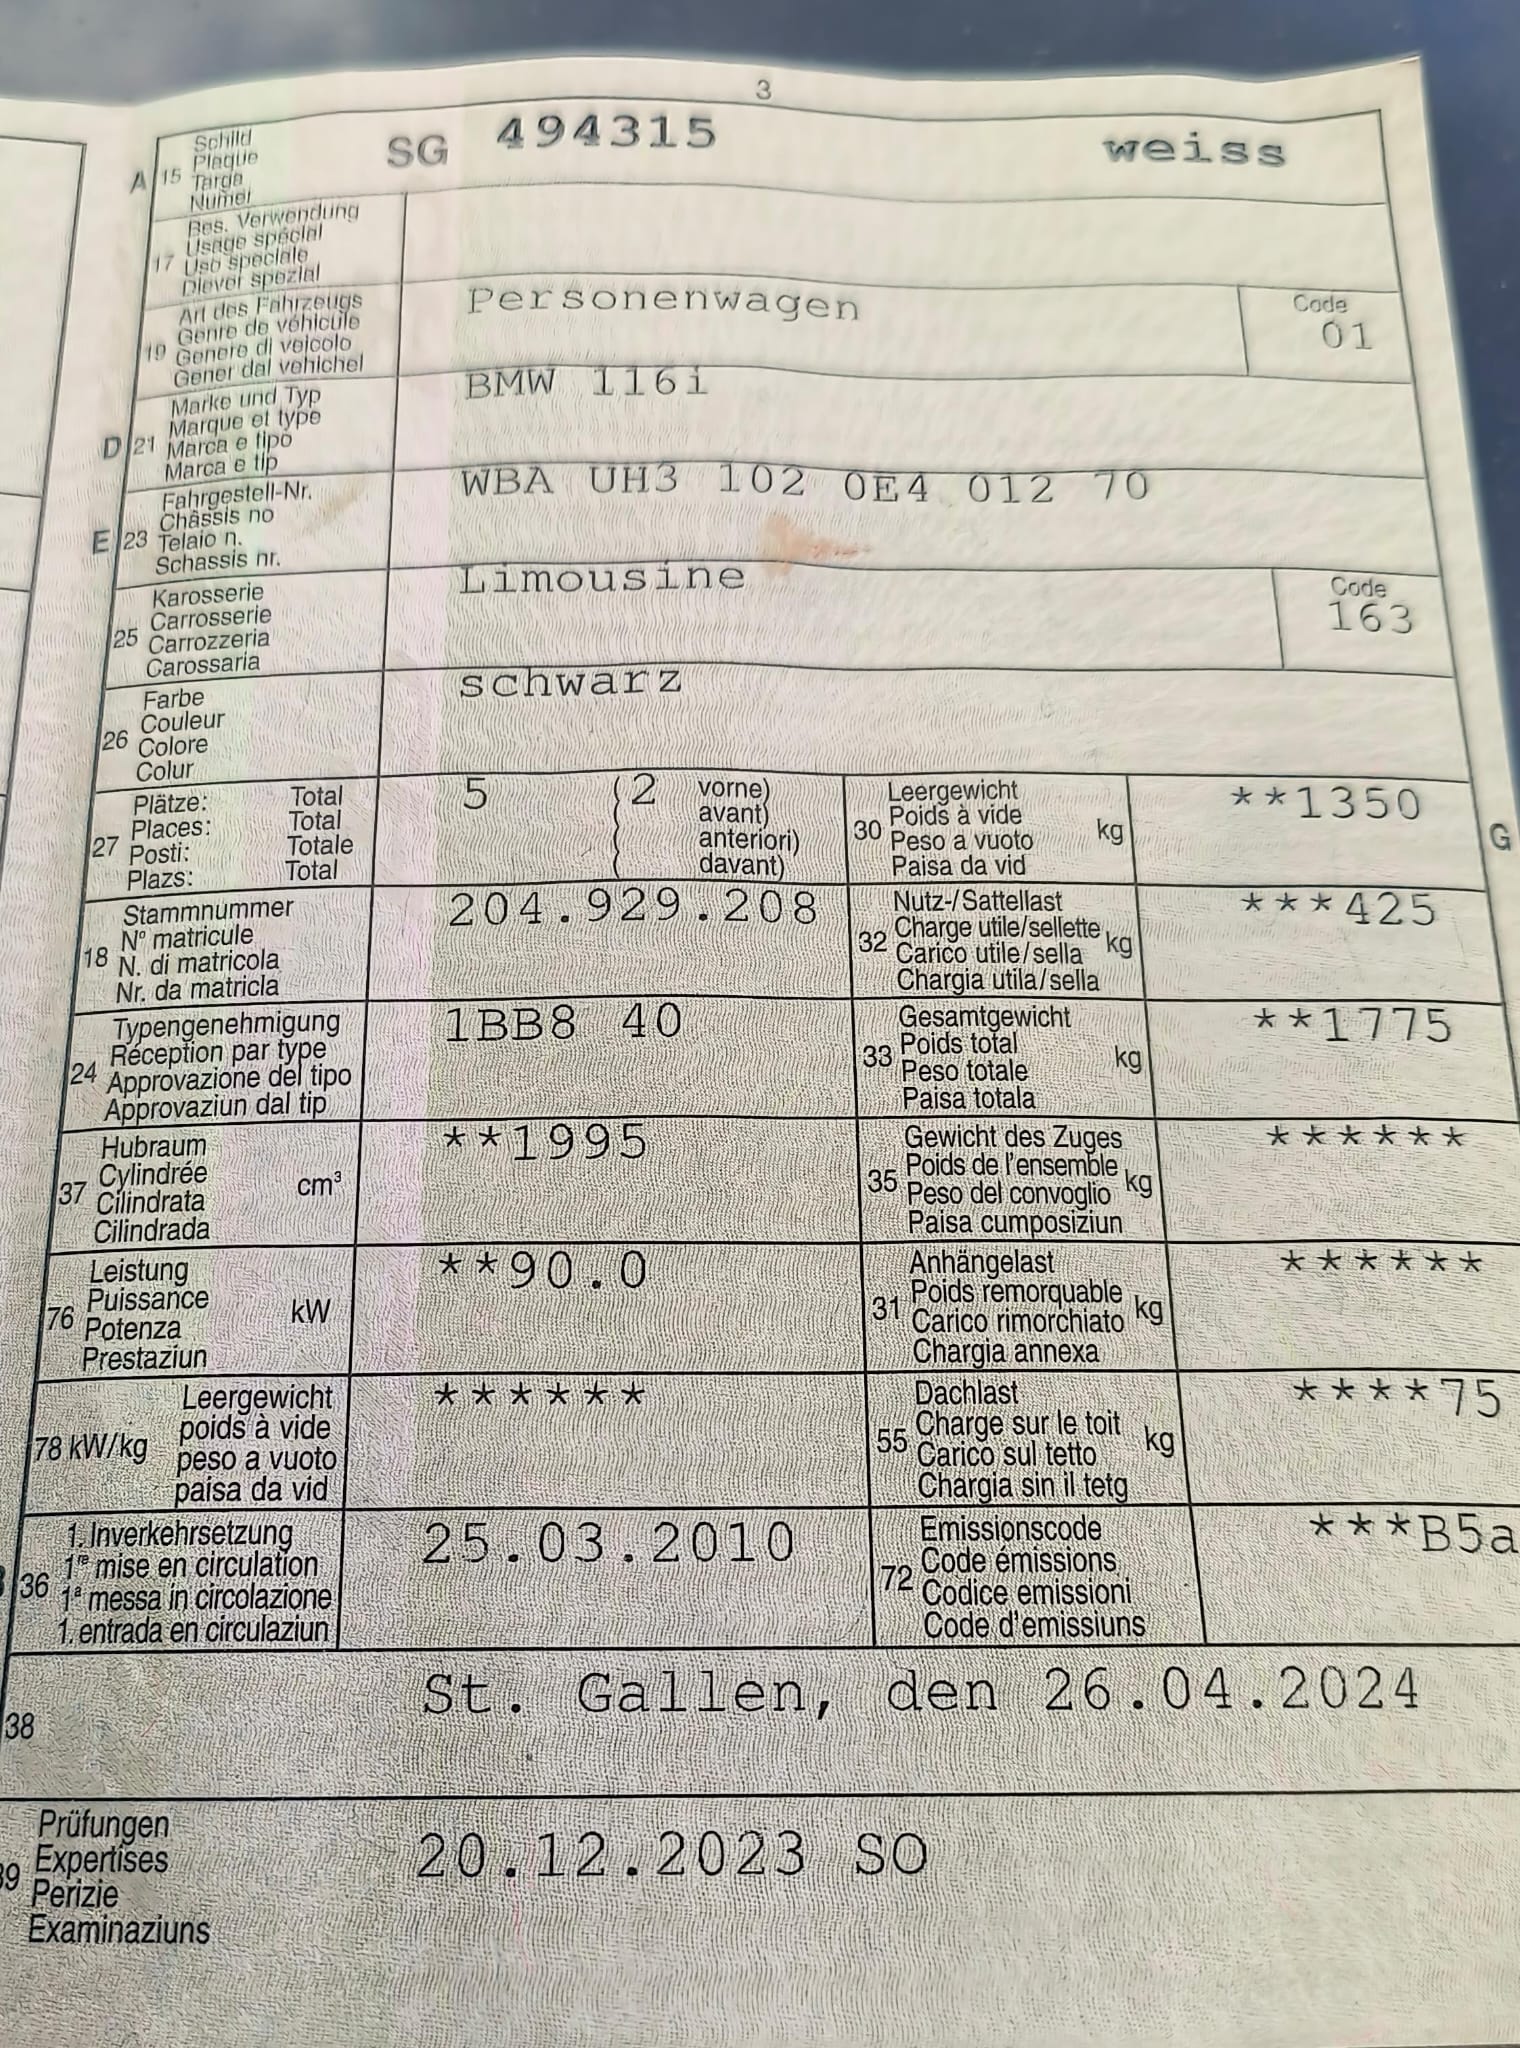 3
A 15 Schild SG 494315 weiss
Plaque
Targa
Numer
17 Bes. Verwendung
Usage spécial
Uso speciale
Diever spezial
19 Art des Fahrzeugs Personenwagen Code
Genre de véhicule 01
Genere di veicolo
Gener dal vehichel
D 21 Marke und Typ BMW 116i
Marque et type
Marca e tipo
Marca e tip
E 23 Fahrgestell-Nr. WBA UH3 102 0E4 012 70
Châssis no
Telaio n.
Schassis nr.
25 Karosserie Limousine Code
Carrosserie 163
Carrozzeria
Carossaria
26 Farbe schwarz
Couleur
Colore
Colur
27 Plätze: Total 5 (2 vorne) 30 Leergewicht kg **1350 G
Places: Total ( avant) Poids à vide
Posti: Totale ( anteriori) Peso a vuoto
Plazs: Total ( davant) Paisa da vid
18 Stammnummer 204.929.208 32 Nutz-/Sattellast kg ***425
N° matricule Charge utile/sellette
N. di matricola Carico utile/sella
Nr. da matricla Chargia utila/sella
24 Typengenehmigung 1BB8 40 33 Gesamtgewicht kg **1775
Réception par type Poids total
Approvazione del tipo Peso totale
Approvaziun dal tip Paisa totala
37 Hubraum cm³ **1995 35 Gewicht des Zuges kg ******
Cylindrée Poids de l'ensemble
Cilindrata Peso del convoglio
Cilindrada Paisa cumposiziun
76 Leistung kW **90.0 31 Anhängelast kg ******
Puissance Poids remorquable
Potenza Carico rimorchiato
Prestaziun Chargia annexa
78 kW/kg Leergewicht ****** 55 Dachlast kg ****75
poids à vide Charge sur le toit
peso a vuoto Carico sul tetto
paisa da vid Chargia sin il tetg
36 1. Inverkehrsetzung 25.03.2010 72 Emissionscode ***B5a
1re mise en circulation Code émissions
1a messa in circolazione Codice emissioni
1. entrada en circulaziun Code d'emissiuns
38 St. Gallen, den 26.04.2024
39 Prüfungen 20.12.2023 SO
Expertises
Perizie
Examinaziuns